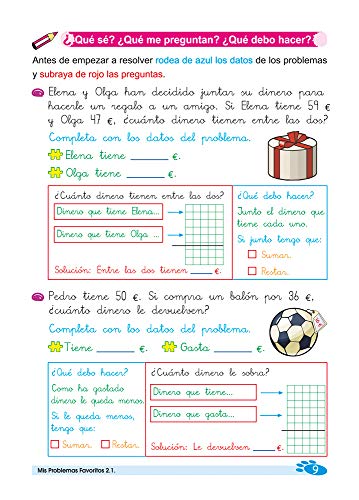 ¿Qué sé? ¿Qué me preguntan? ¿Qué debo hacer?
Antes de empezar a resolver rodea de azul los datos de los problemas
y subraya de rojo las preguntas.
Elena y Olga han decidido juntar su dinero para
hacerle un regalo a un amigo. Si Elena tiene 59 €
y Olga 47 €, ¿cuánto dinero tienen entre las dos?
Completa con los datos del problema.
Elena tiene ____ €.
Olga tiene ____ €.
¿Cuánto dinero tienen entre las dos?
Dinero que tiene Elena...
Dinero que tiene Olga ...
Solución: Entre las dos tienen ____ €.
¿Qué debo hacer?
Junto el dinero que
tiene cada una.
Si junto tengo que:
Sumar.
Restar.
Pedro tiene 50 €. Si compra un balón por 36 €,
¿cuánto dinero le devuelven?
Completa con los datos del problema.
Tiene ____ €. Gasta ____ €.
¿Qué debo hacer?
Como ha gastado
dinero le queda menos.
Si le queda menos,
tengo que:
Sumar. Restar.
¿Cuánto dinero le sobra?
Dinero que tiene...
Dinero que gasta...
Solución: Le devuelven ____ €.
Mis Problemas Favoritos 2.1.
9